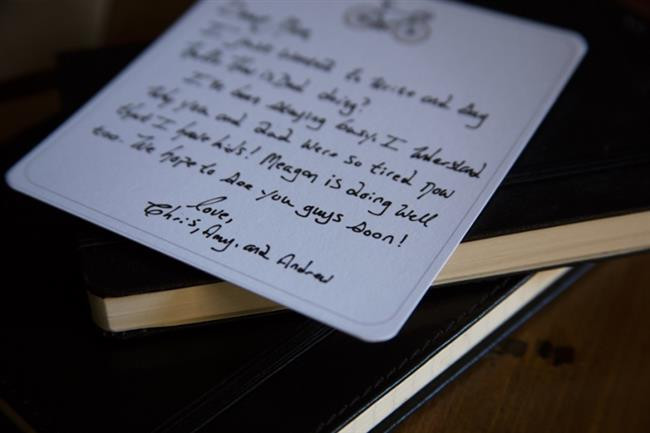 Dear Mom,
I just wanted to write and say
hello. How is Dad doing?
I've been staying busy. I understand
why you and Dad were so tired now
that I have kids! Meagan is doing well
too. We hope to see you guys soon!
Love,
Chris, Amy, and Andrew